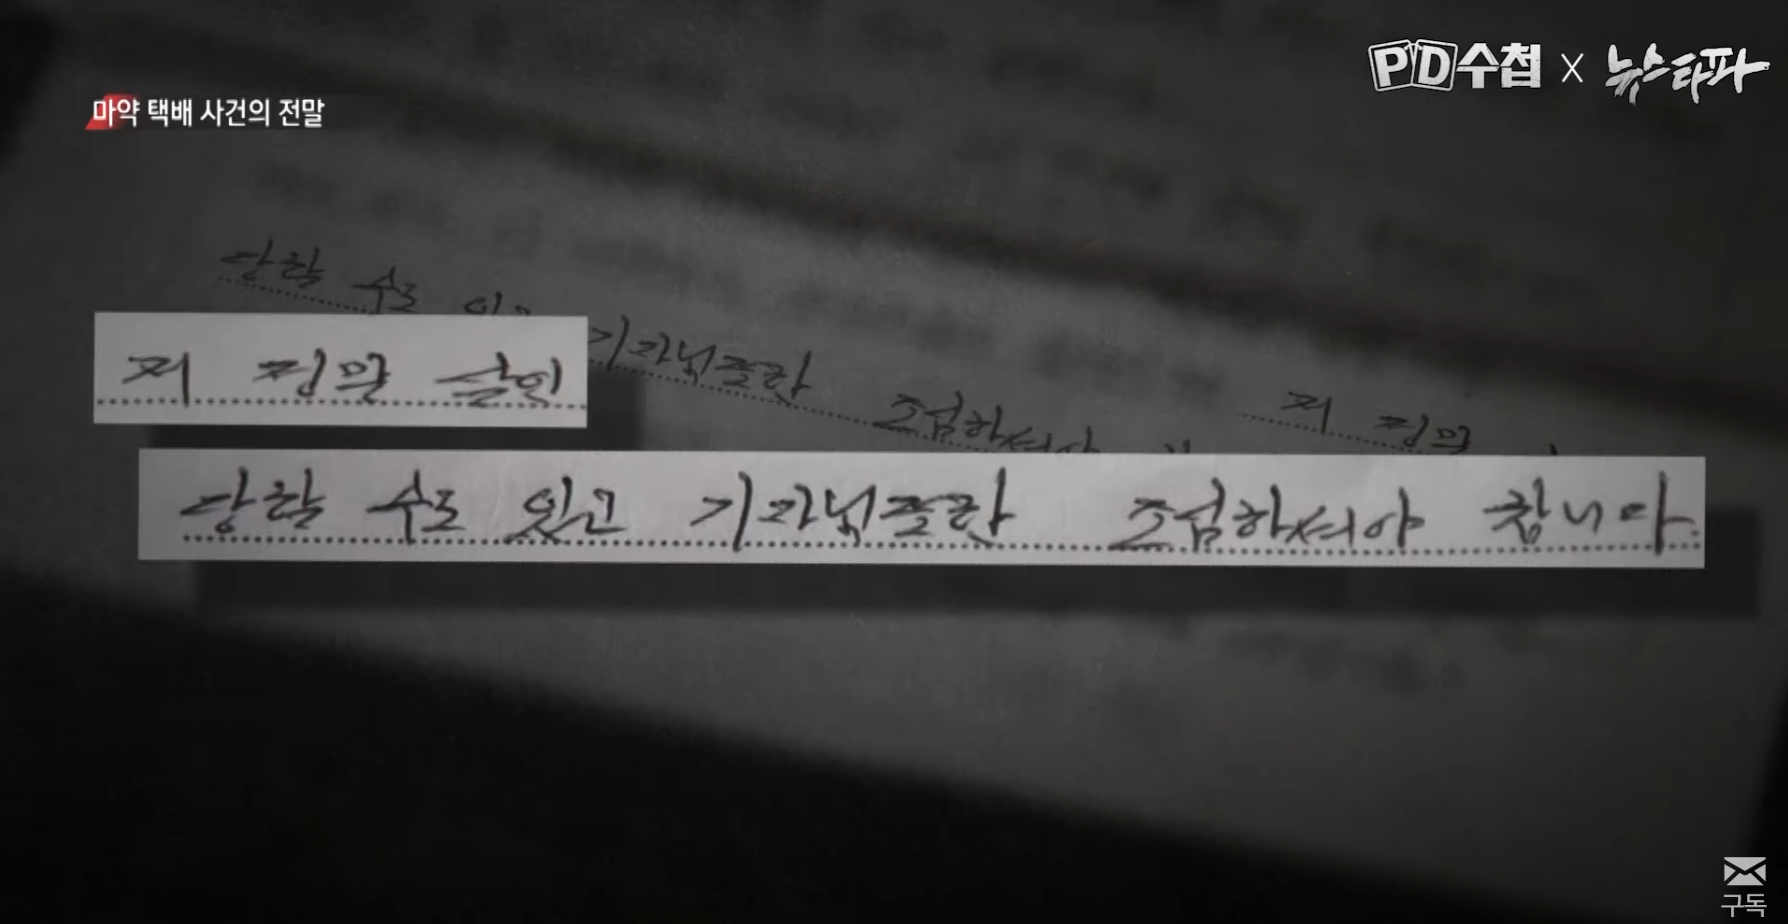 PD수첩 X 뉴스타파
마약 택배 사건의 전말
당할 수도
기자님들과 조심하셔야
저 정말
저 정말 살인
당할 수도 있고 기자님들과 조심하셔야 합니다.
구독